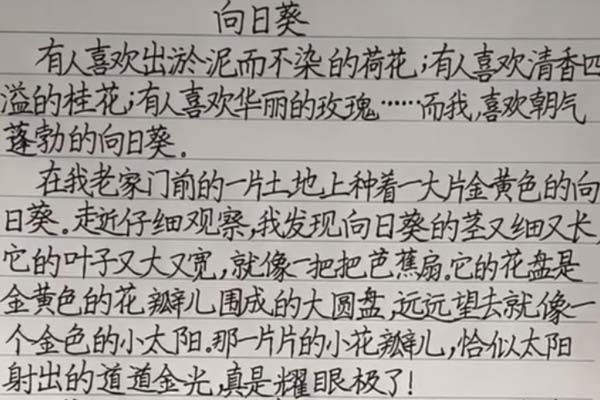 向日葵
有人喜欢出淤泥而不染的荷花;有人喜欢清香四
溢的桂花;有人喜欢华丽的玫瑰……而我,喜欢朝气
蓬勃的向日葵。
在我老家门前的一片土地上种着一大片金黄色的向
日葵。走近仔细观察,我发现向日葵的茎又细又长,
它的叶子又大又宽,就像一把把芭蕉扇。它的花盘是
金黄色的花瓣儿围成的大圆盘,远远望去就像一
个金色的小太阳。那一片片的小花瓣儿,恰似太阳
射出的道道金光,真是耀眼极了!